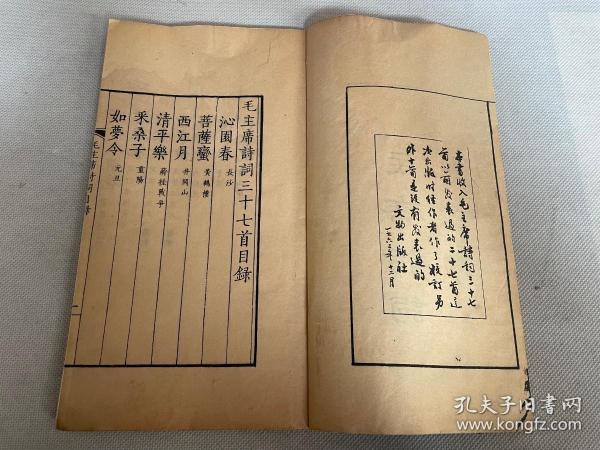 本書收入毛主席詩詞三十七
首以前发表過的二十七首这
次出版时经作者作了校订另
外十首是没有发表過的
文物出版社
一九六三年十二月
毛主席詩詞三十七首目録
沁園春 長沙
菩薩蠻 黃鶴樓
西江月 井岡山
清平樂 蔣桂戰爭
采桑子 重陽
如夢令 元旦
毛主席詩詞目錄
孔夫子旧书网